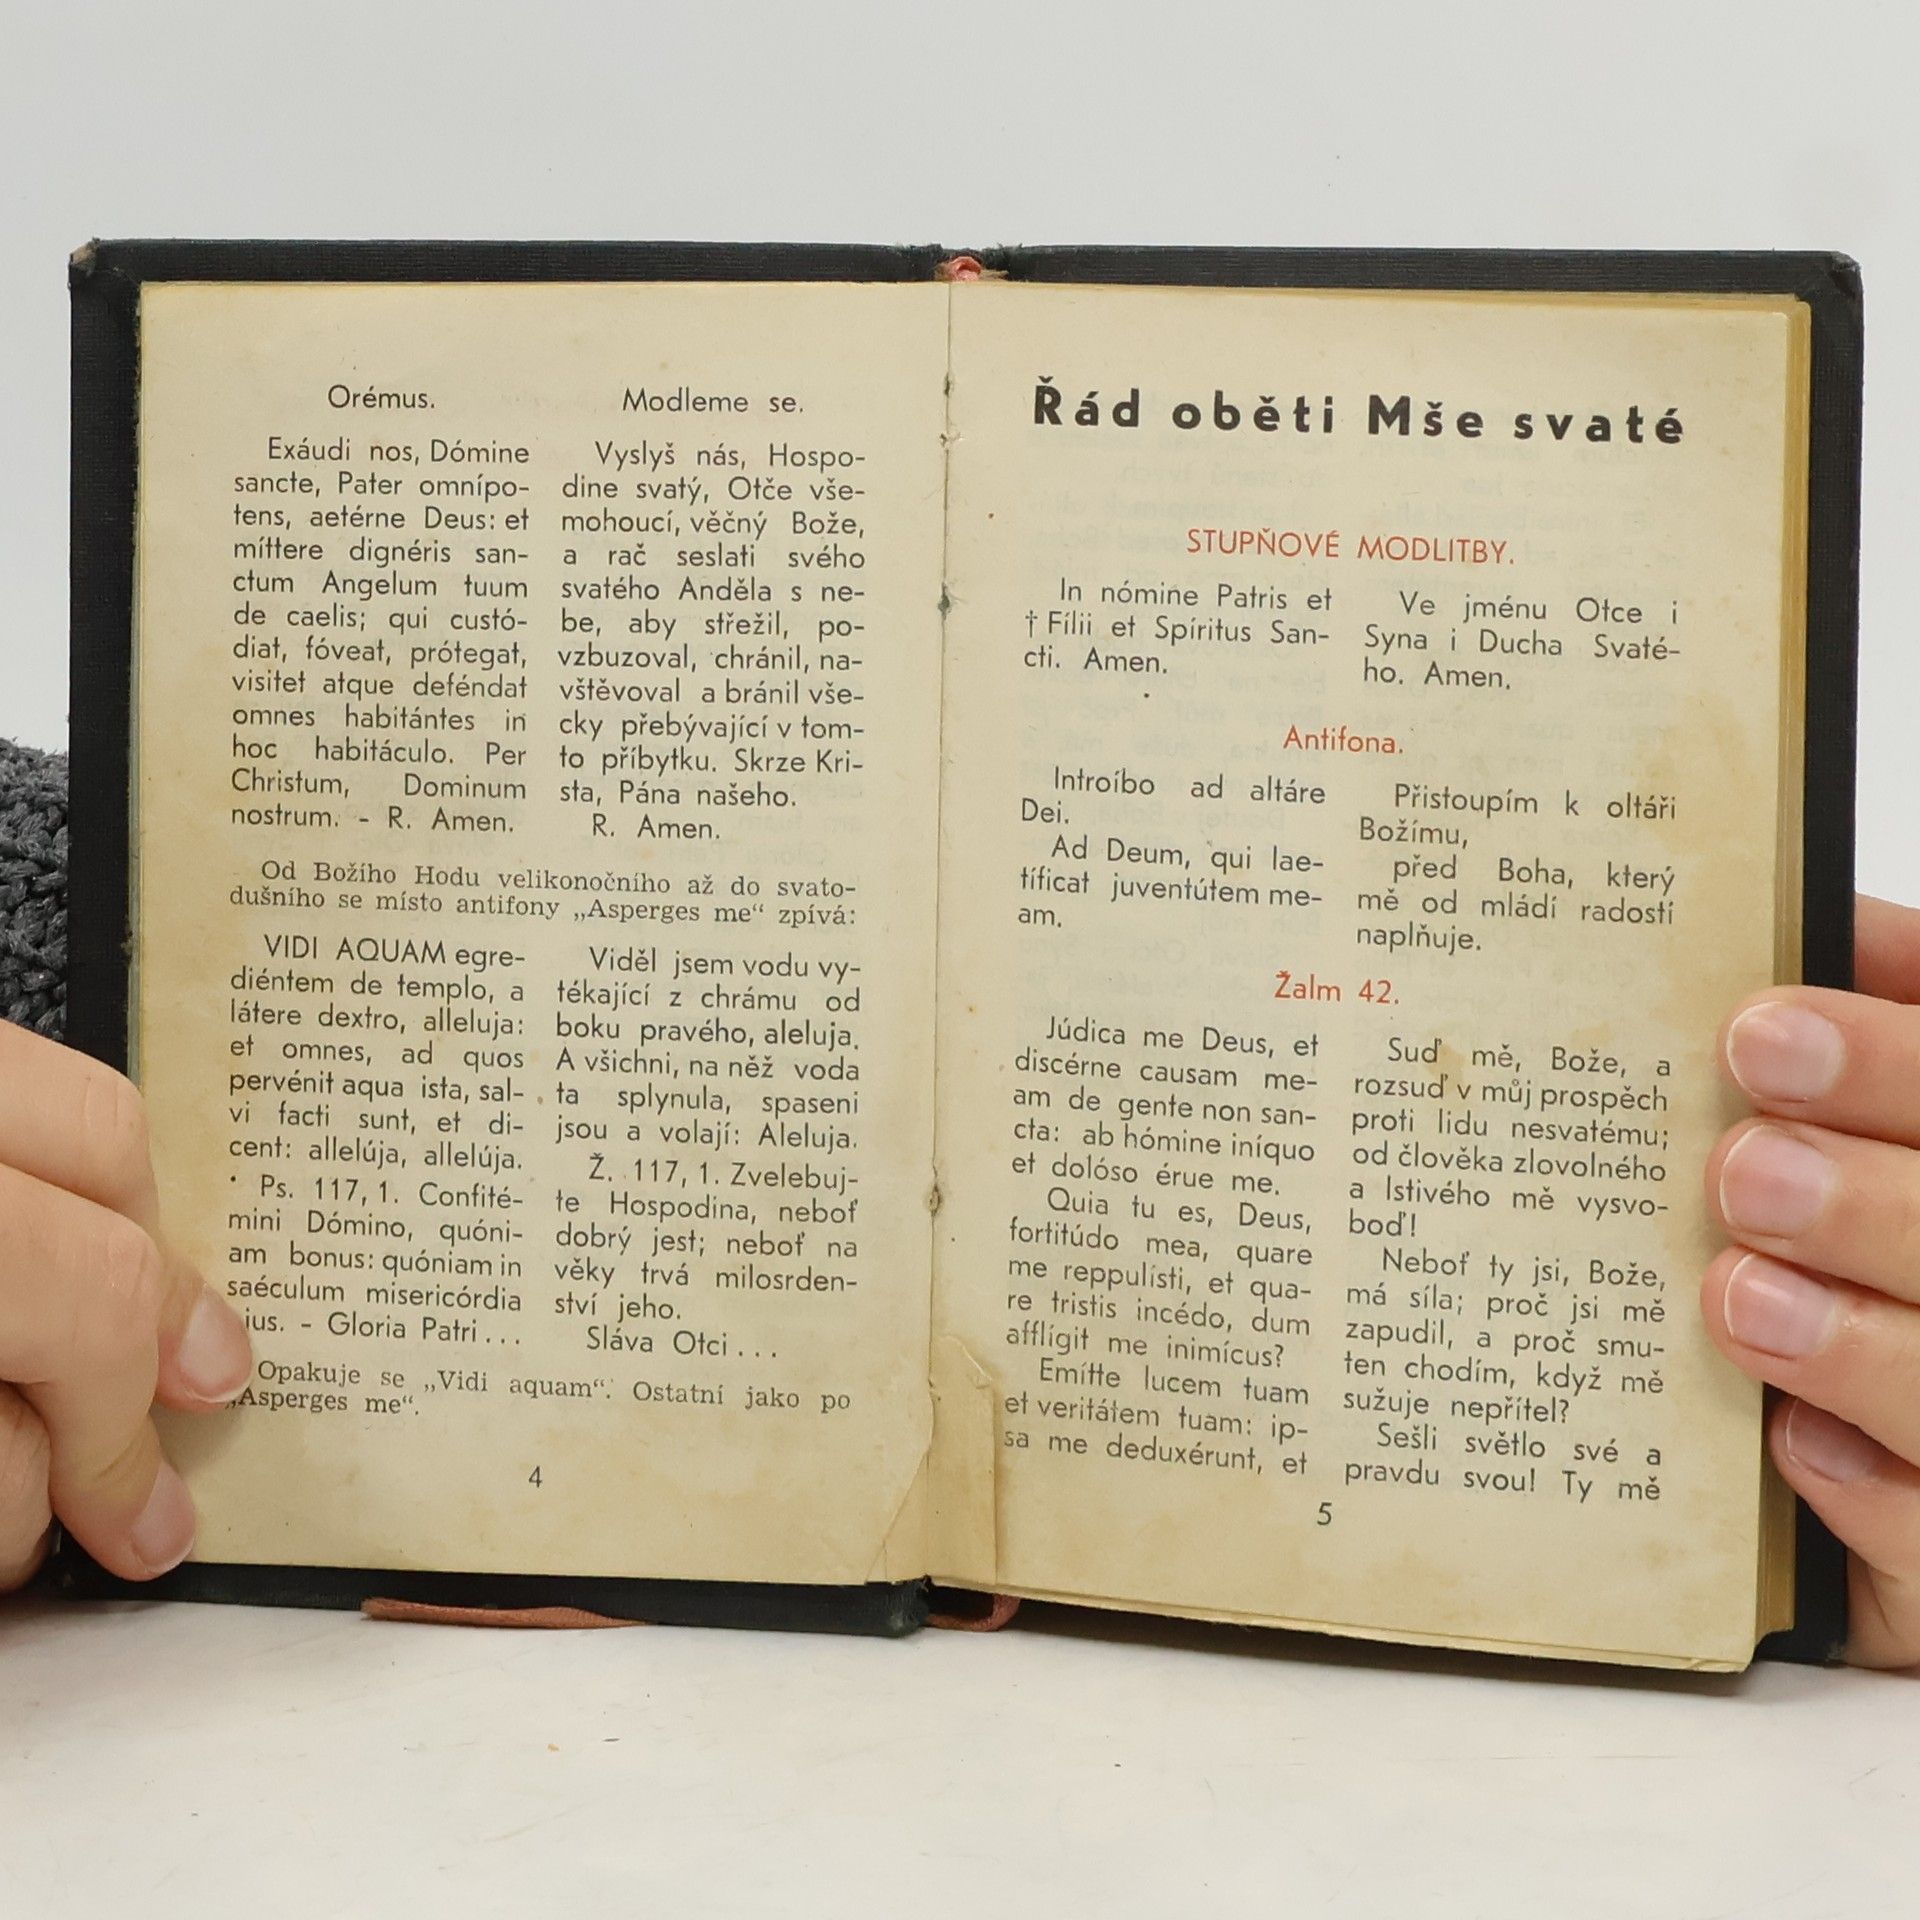 Orémus.
Exáudi nos, Dómine
sancte, Pater omnípo-
tens, aetérne Deus: et
míttere dignéris san-
ctum Angelum tuum
de caelis; qui custó-
diat, fóveat, prótegat,
visitet atque deféndat
omnes habitántes in
hoc habitáculo. Per
Christum, Dominum
nostrum. - R. Amen.
Modleme se.
Vyslyš nás, Hospo-
dine svatý, Otče vše-
mohoucí, věčný Bože,
a rač seslati svého
svatého Anděla s ne-
be, aby střežil, po-
vzbuzoval, chránil, na-
vštěvoval a bránil vše-
cky přebývající v tom-
to příbytku. Skrze Kri-
sta, Pána našeho.
R. Amen.
Od Božího Hodu velikonočního až do svato-
dušního se místo antifony „Asperges me“ zpívá:
VIDI AQUAM egre-
diéntem de templo, a
látere dextro, alleluja:
et omnes, ad quos
pervénit aqua ista, sal-
vi facti sunt, et di-
cent: allelúja, allelúja.
Ps. 117, 1. Confité-
mini Dómino, quóni-
am bonus: quóniam in
saéculum misericórdia
ius. - Gloria Patri . . .
Viděl jsem vodu vy-
tékající z chrámu od
boku pravého, aleluja.
A všichni, na něž voda
ta splynula, spaseni
jsou a volají: Aleluja.
Ž. 117, 1. Zvelebuj-
te Hospodina, neboť
dobrý jest; neboť na
věky trvá milosrden-
ství jeho.
Sláva Otci . . .
Opakuje se „Vidi aquam“. Ostatní jako po
„Asperges me“.
4
Řád oběti Mše svaté
STUPŇOVÉ MODLITBY.
In nómine Patris et
† Fílii et Spíritus San-
cti. Amen.
Ve jménu Otce i
Syna i Ducha Svaté-
ho. Amen.
Antifona.
Introíbo ad altáre
Dei.
Ad Deum, qui lae-
tíficat juventútem me-
am.
Přistoupím k oltáři
Božímu,
před Boha, který
mě od mládí radostí
naplňuje.
Žalm 42.
Júdica me Deus, et
discérne causam me-
am de gente non san-
cta: ab hómine iníquo
et dolóso érue me.
Quia tu es, Deus,
fortitúdo mea, quare
me reppulísti, et qua-
re tristis incédo, dum
afflígit me inimícus?
Emítte lucem tuam
et veritátem tuam: ip-
sa me deduxérunt, et
Suď mě, Bože, a
rozsuď v můj prospěch
proti lidu nesvatému;
od člověka zlovolného
a lstivého mě vysvo-
boď!
Neboť ty jsi, Bože,
má síla; proč jsi mě
zapudil, a proč smu-
ten chodím, když mě
sužuje nepřítel?
Sešli světlo své a
pravdu svou! Ty mě
5